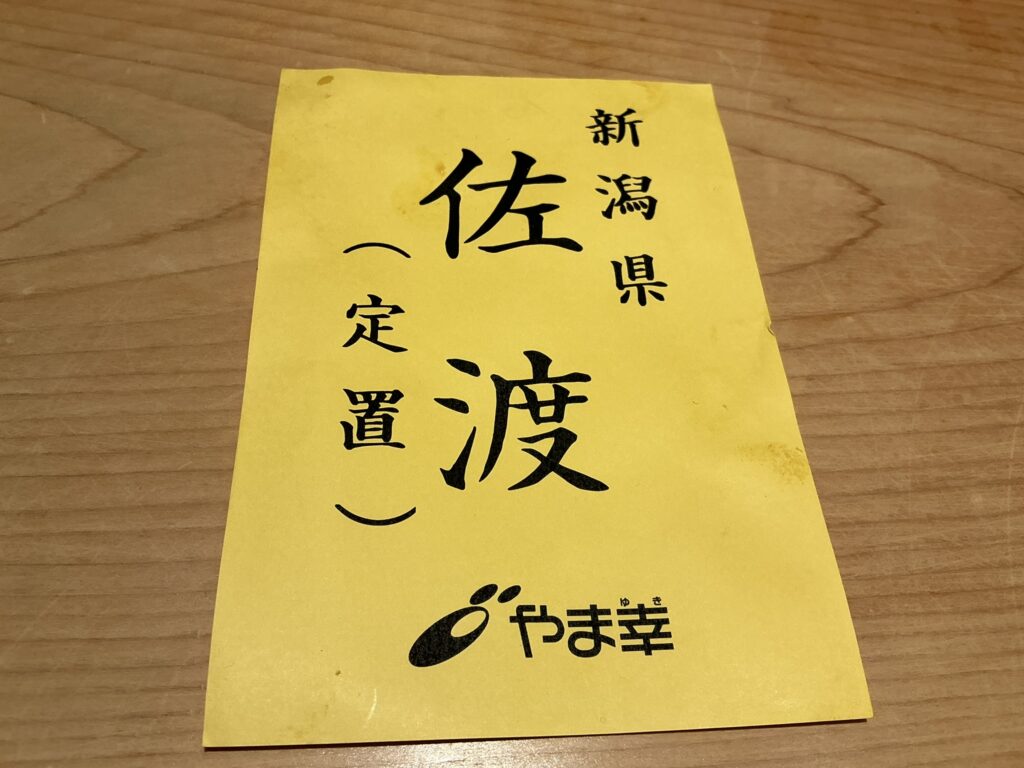 新潟県
佐渡
（定置）
やま幸
ゆき